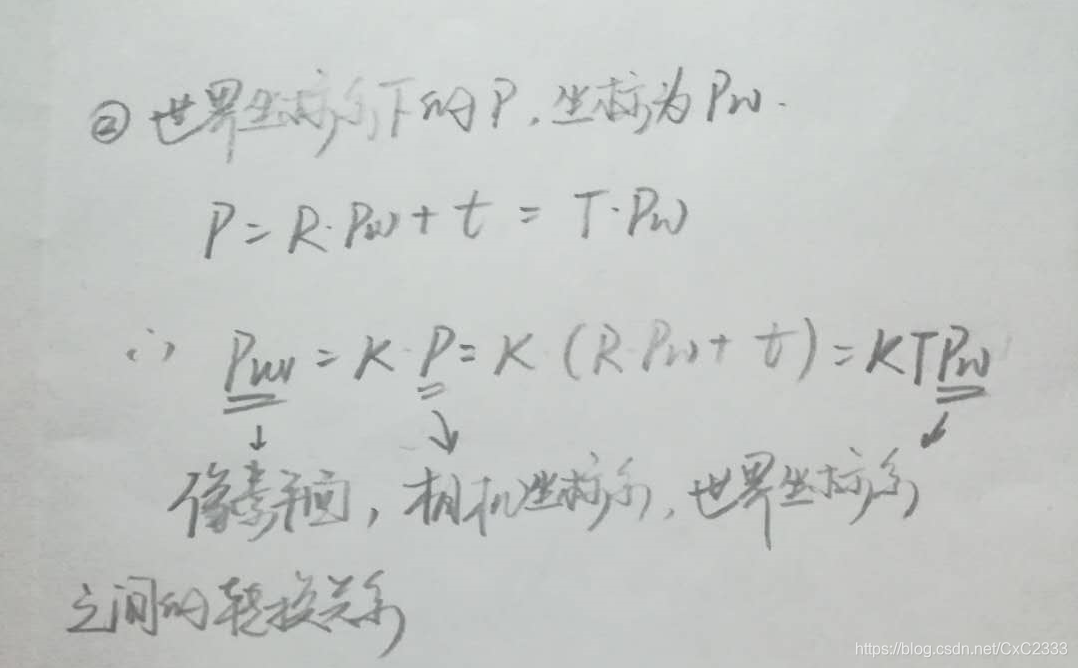 ② 世界坐标系下的P,坐标为Pw.
P = R·Pw + t = T·Pw
∴ Puv = K·P = K·(R·Pw + t) = KTPw
↓ ↘ ↙
像素平面,相机坐标系,世界坐标系
之间的转换关系
https://blog.csdn.net/CxC2333